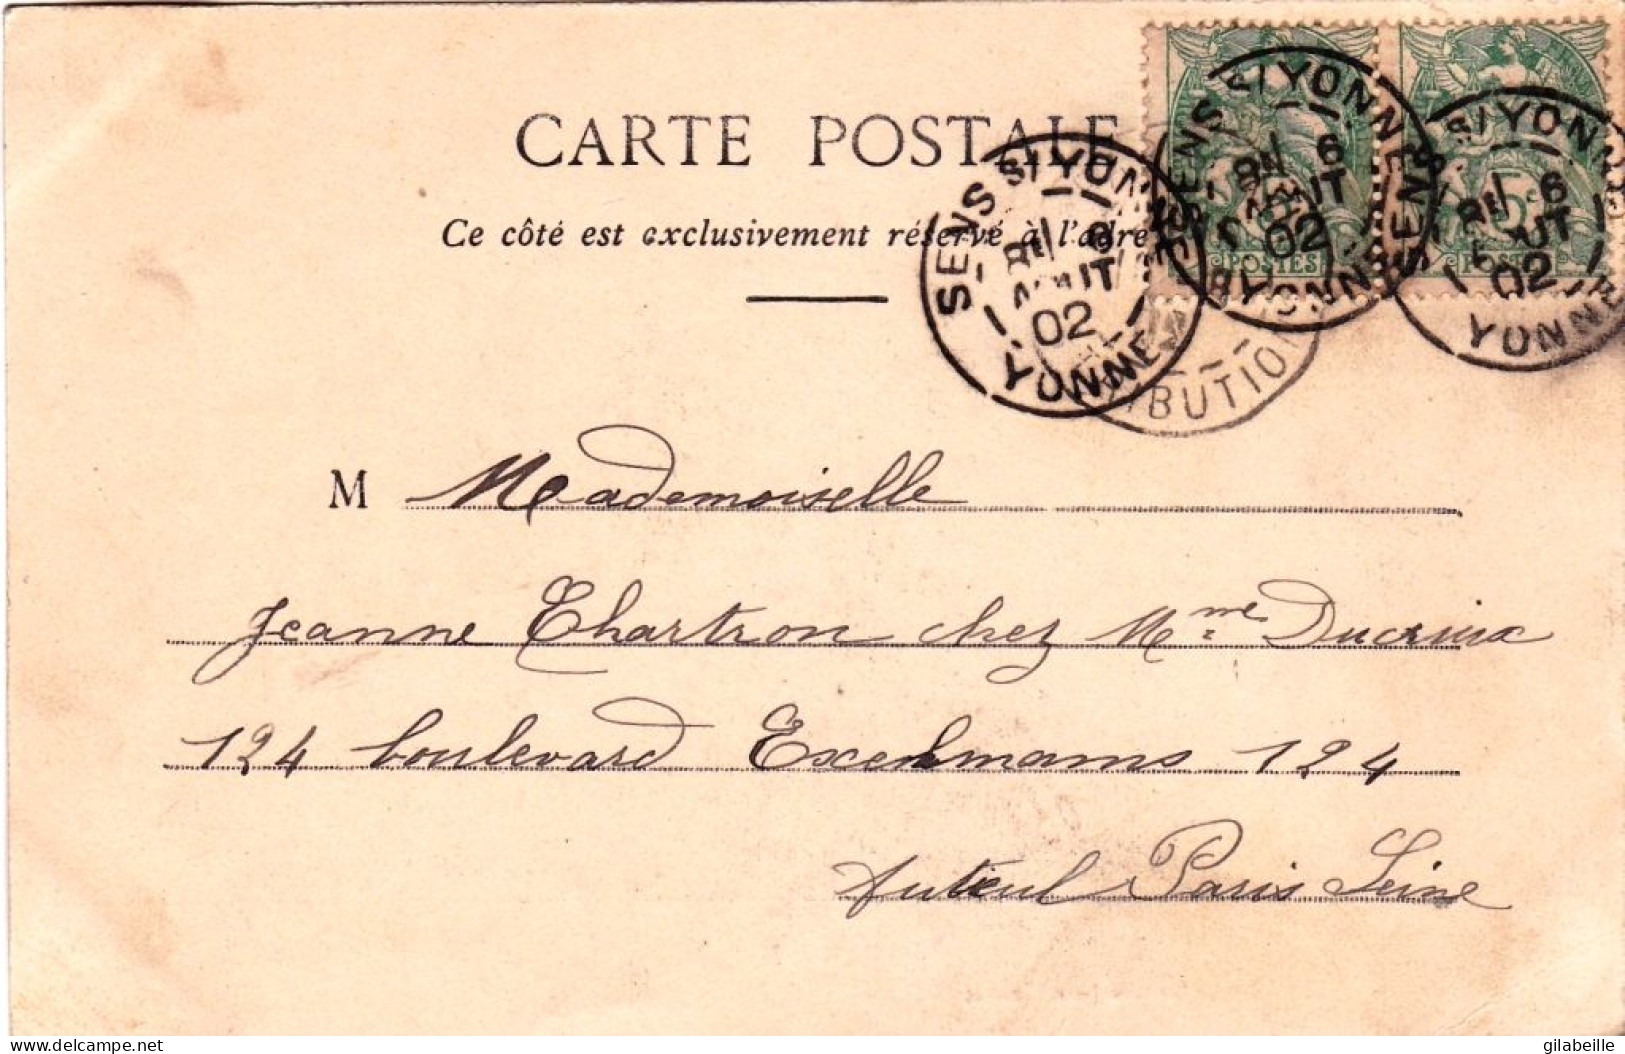 CARTE POSTALE
Ce côté est exclusivement réservé à l'adre
SENS S/ YONNE
8E/ 6
AOUT
02
YONNE
SENS S/ YONNE
8E/ 6
AOUT
02
YONNE
SENS S/ YONNE
8E/ 6
AOUT
02
YONNE
5c
POSTES
POSTES
IBUTION
M Mademoiselle
Jeanne Chartron chez Mme Ducrux
124 boulevard Exelmams 124
Auteuil Paris Seine
delcampe.net
gilabeille